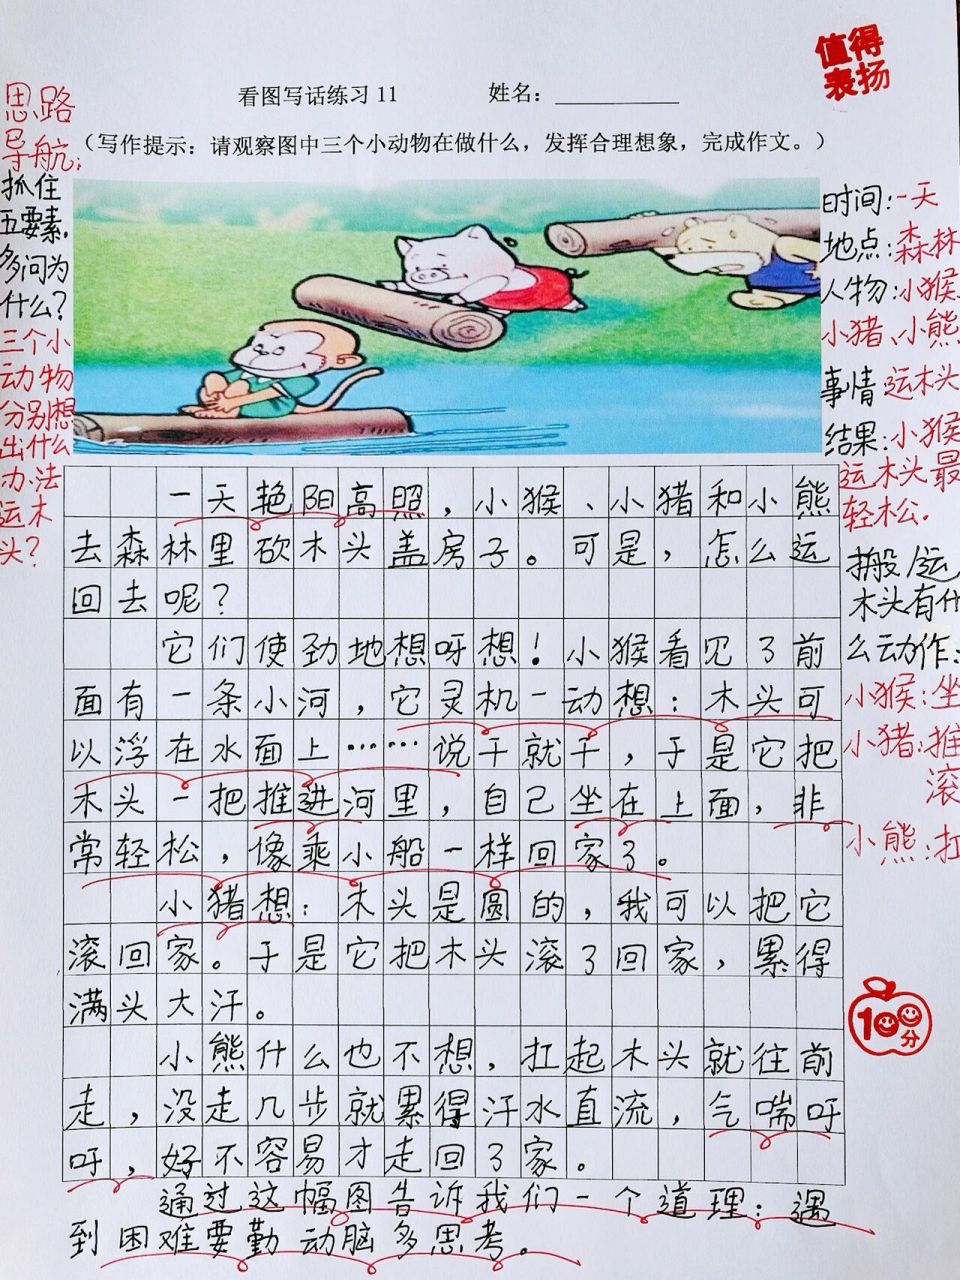 值得
表扬
看图写话练习 11 姓名：
（写作提示：请观察图中三个小动物在做什么，发挥合理想象，完成作文。）
思路
导航：
抓住
五要素，
多问为
什么？
三个小
动物
分别想
出什么
办法
运木
头？
时间：一天
地点：森林
人物：小猴、
小猪、小熊
事情 运木头
结果：小猴
运木头最
轻松．
搬/运
木头有什
么动作：
小猴：坐
小猪：推
滚
小熊：扛
一天艳阳高照，小猴、小猪和小熊
去森林里砍木头盖房子。可是，怎么运
回去呢？
它们使劲地想呀想！小猴看见了前
面有一条小河，它灵机一动想：木头可
以浮在水面上……说干就干，于是它把
木头一把推进河里，自己坐在上面，非
常轻松，像乘小船一样回家了。
小猪想：木头是圆的，我可以把它
滚回家。于是它把木头滚了回家，累得
满头大汗。
小熊什么也不想，扛起木头就往前
走，没走几步就累得汗水直流，气喘吁
吁，好不容易才走回了家。
通过这幅图告诉我们一个道理：遇
到困难要勤动脑多思考。
100
分